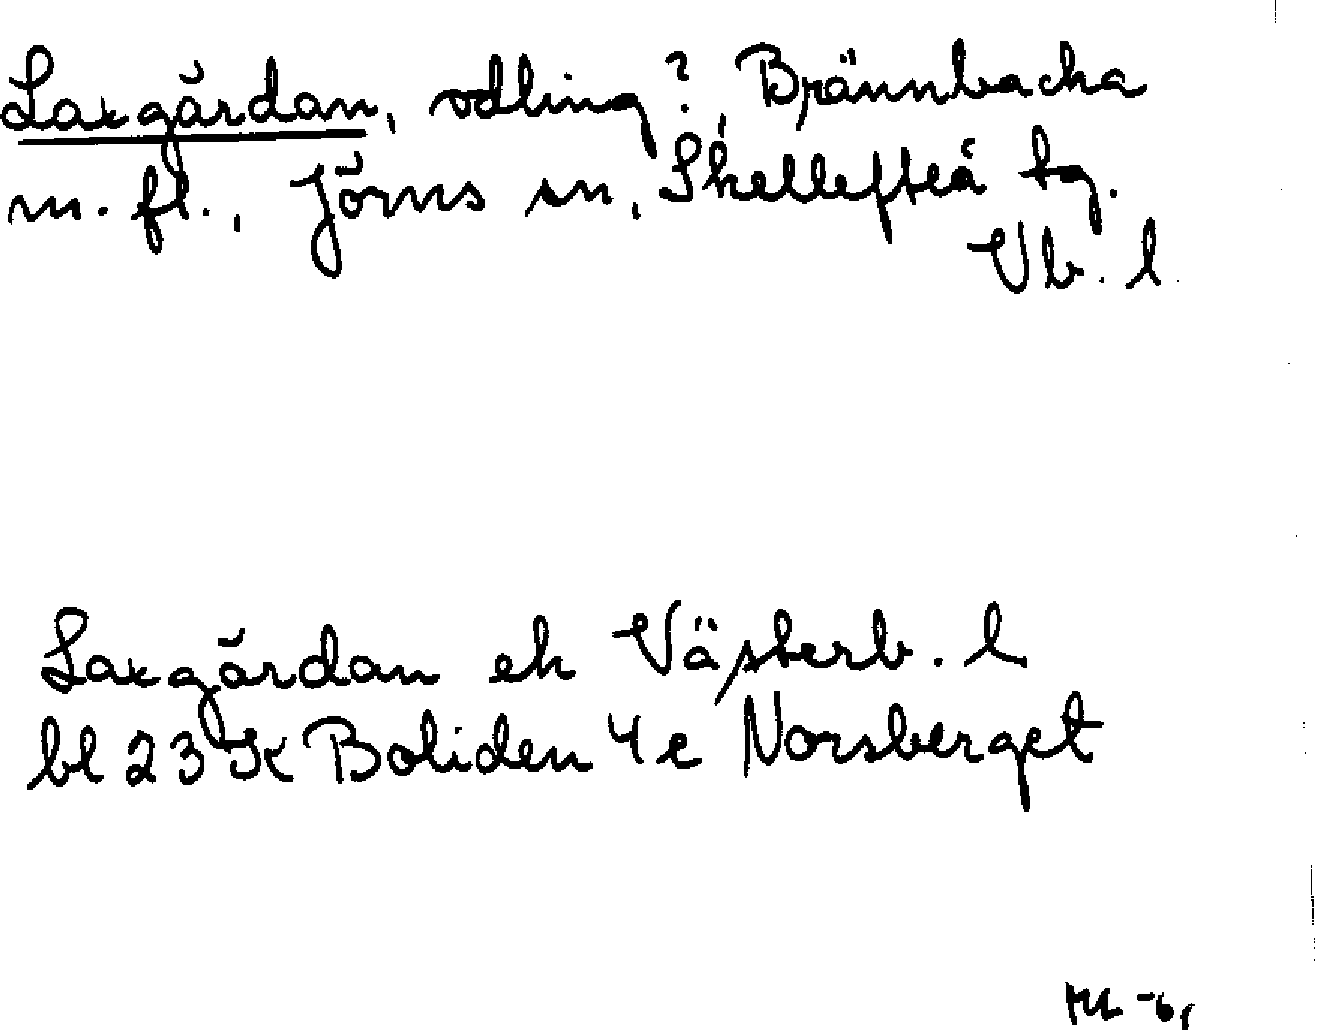 Laxgårdan, odling?, Brännbacka
m. fl., Jörns sn, Skellefteå tg.
Vb. l.
Laxgårdan ek Västerb. l
bl 23 K Boliden 4 e Norsberget